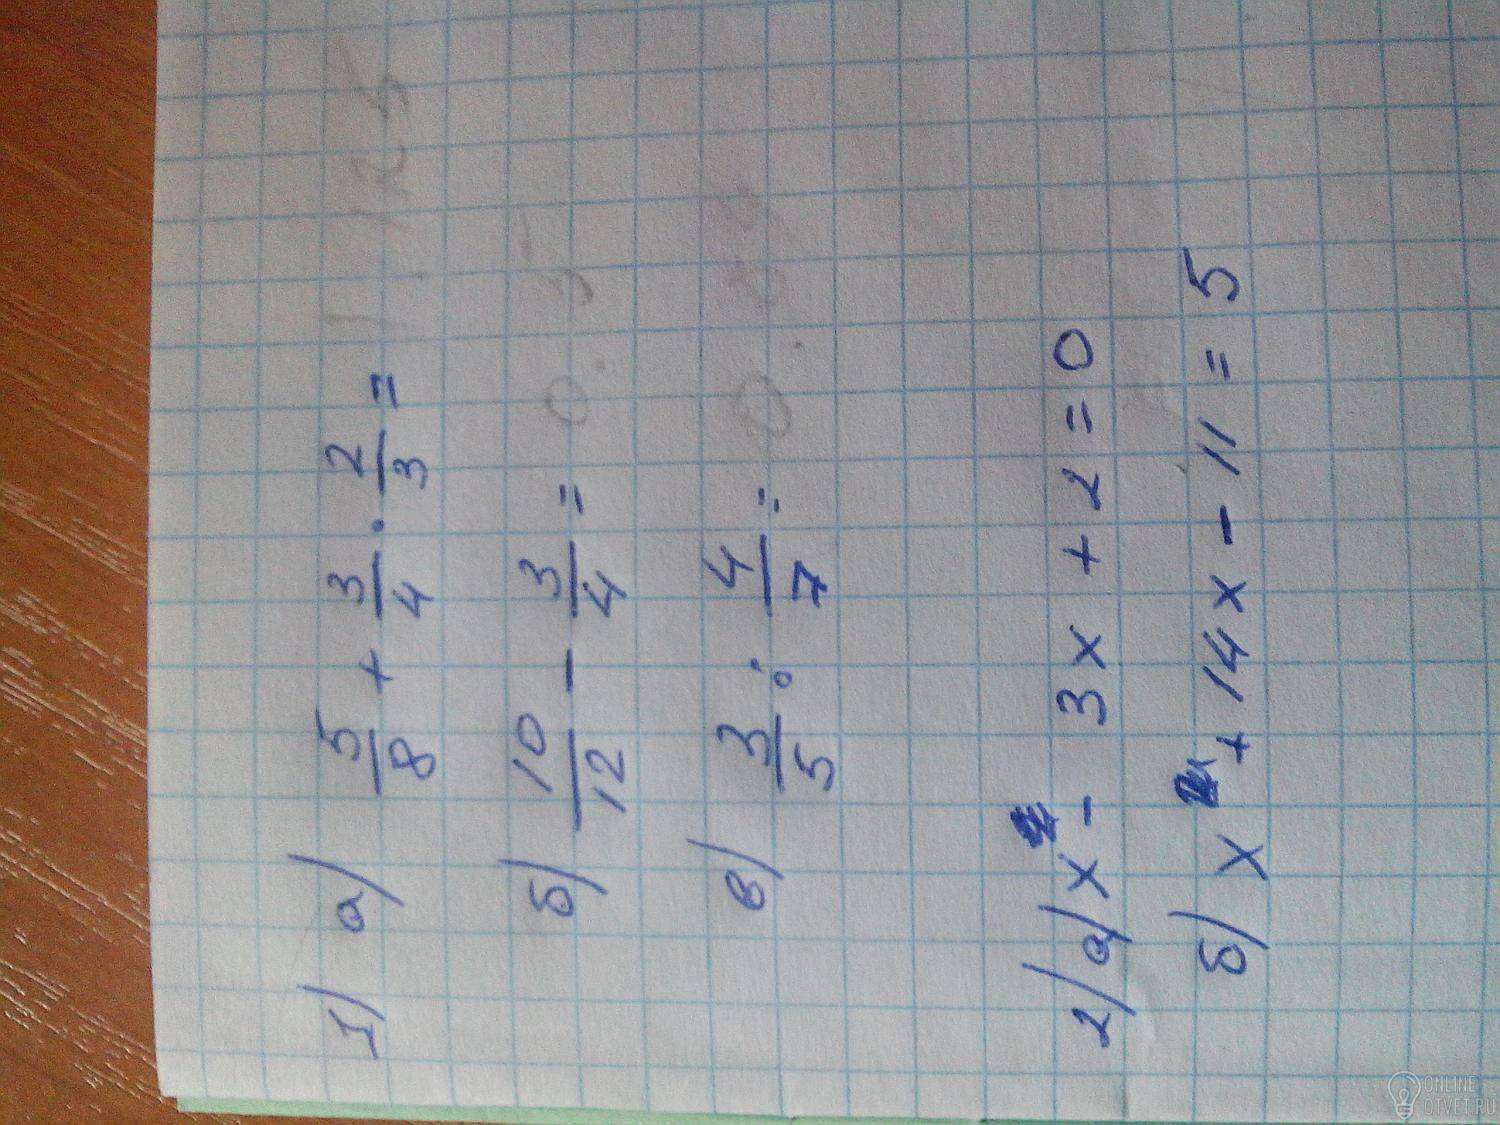 1) а) 5/8 + 3/4 · 2/3 = 1.125
б) 10/12 - 3/4 =
в) 3/5 : 4/7 =
2) а) x² - 3x + 2 = 0
б) x² + 14x - 11 = 5
ONLINE
OTVET.RU